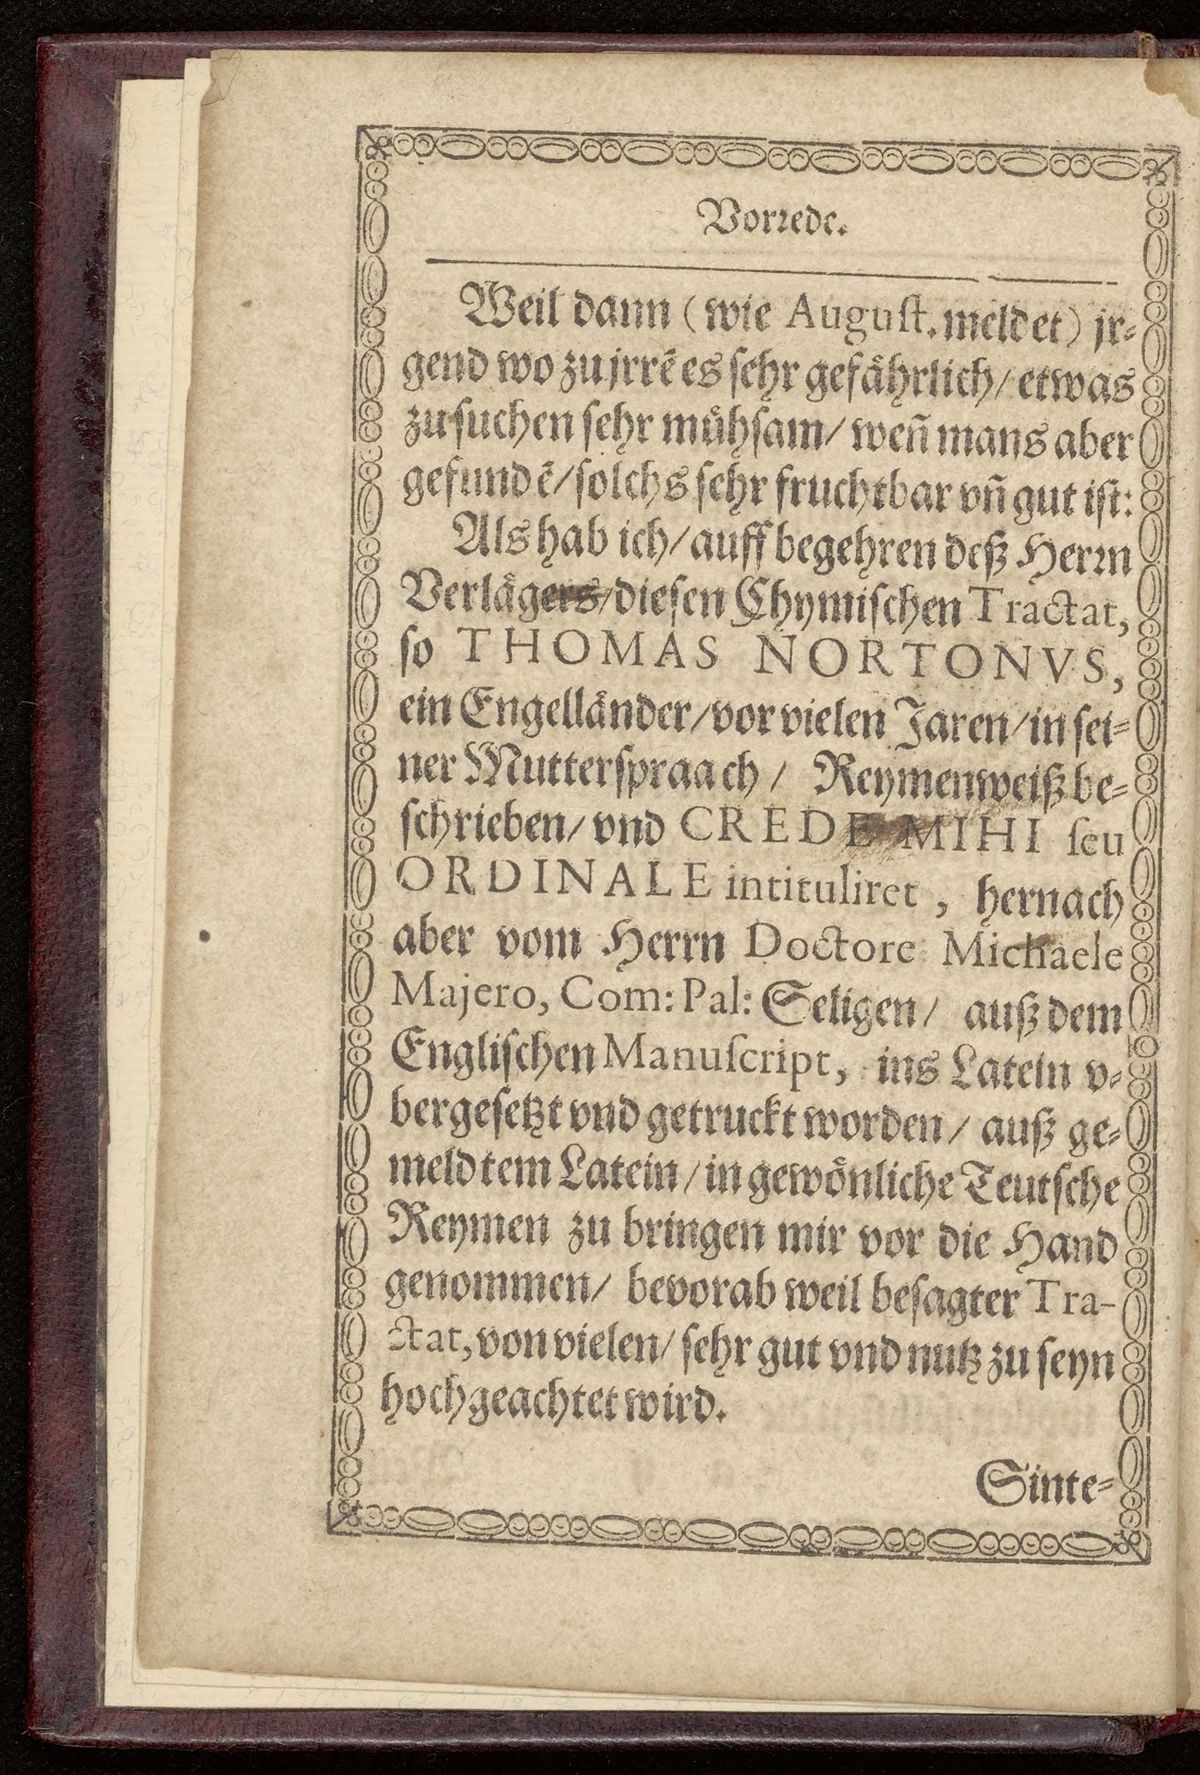 Vorꝛede.
Weil dann (wie Auguſt. meldet) jr⸗
gend wo zu jrrẽ es ſehr gefaͤhrlich/ etwas
zu ſuchen ſehr muͤhſam/ weñ mans aber
gefundẽ/ ſolchs ſehr fruchtbar vñ gut iſt:
Als hab ich/ auff begehren deß Herꝛn
Verlaͤgers/ dieſen Chymiſchen Tractat,
ſo THOMAS NORTONVS,
ein Engellaͤnder/ vor vielen Jaren/ in ſei⸗
ner Mutterſpraach/ Reymenweiß be⸗
ſchrieben/ vnd CREDE MIHI ſeu
ORDINALE intituliret, hernach
aber vom Herrn Doctore Michaele
Majero, Com: Pal: Seligen/ auß dem
Engliſchen Manuſcript, ins Latein v⸗
bergeſetzt vnd getruckt worden/ auß ge⸗
meldtem Latein/ in gewoͤnliche Teutſche
Reymen zu bringen mir vor die Hand
genommen/ bevorab weil beſagter Tra-
ctat, von vielen/ ſehr gut vnd nutz zu ſeyn
hochgeachtet wird.
Sinte⸗